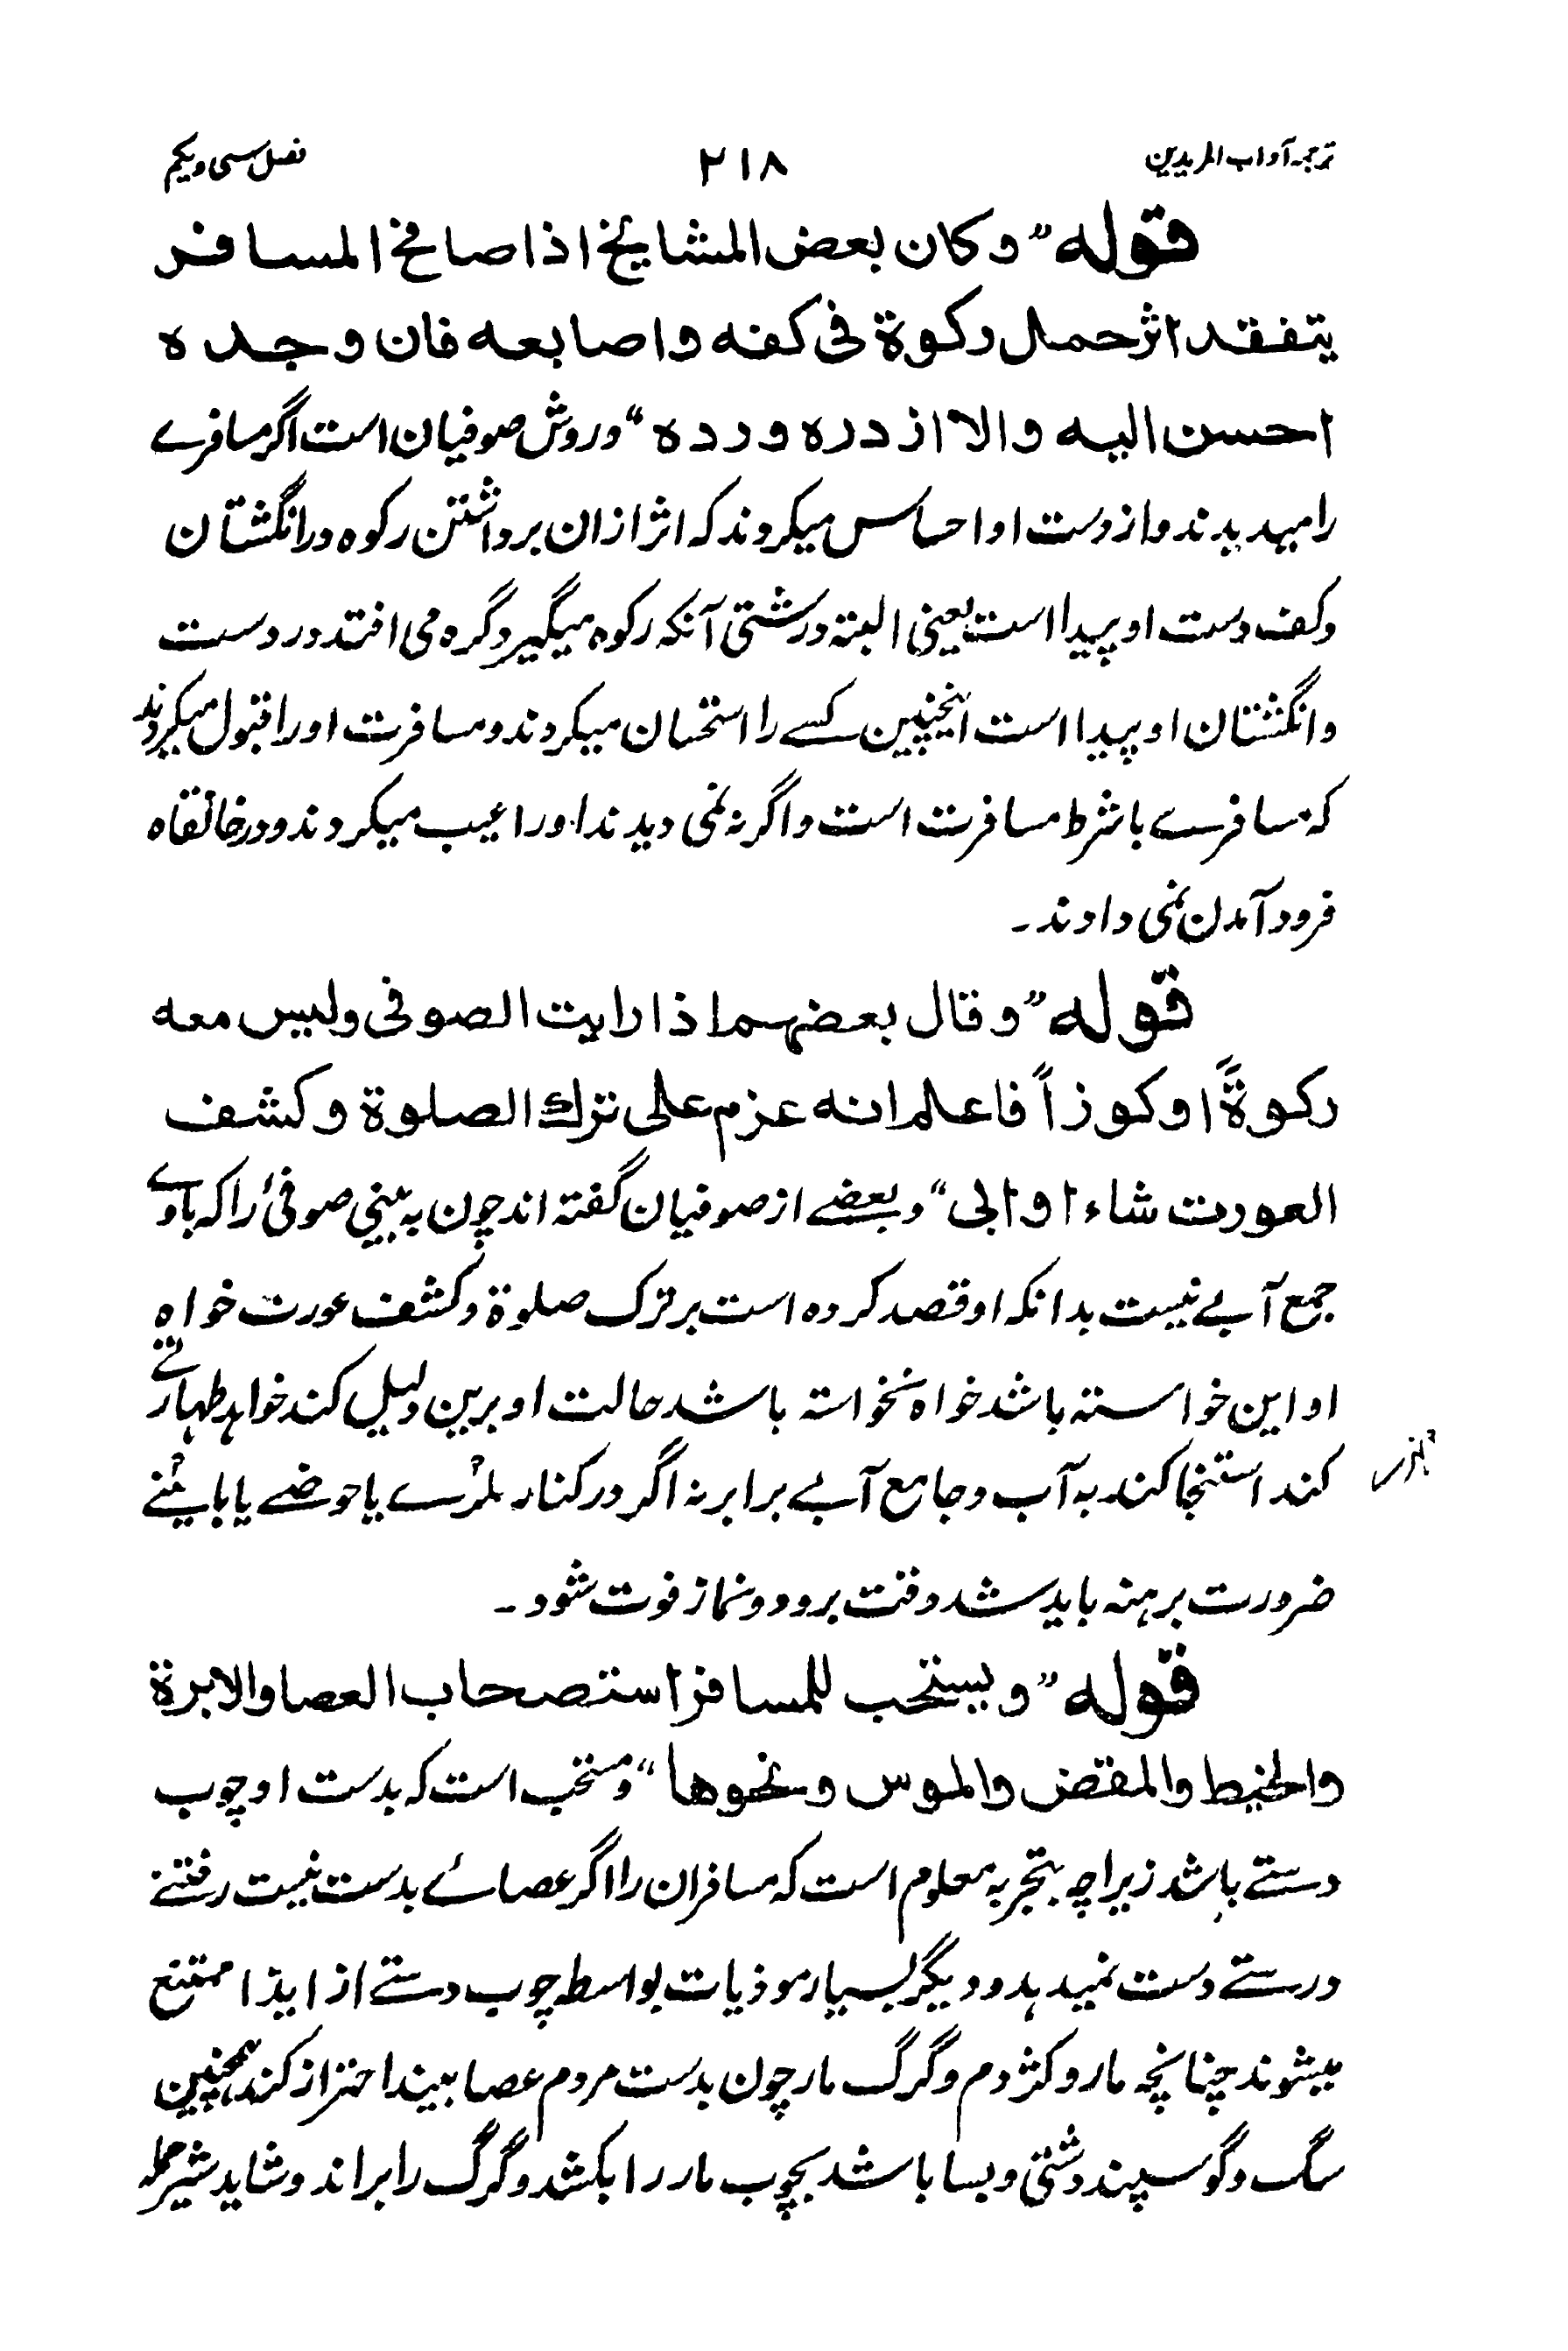 ترجمہ آداب المریدین ۲۱۸ فصل سی ویکم
قوله ”وکان بعض المشایخ اذا صافح المسافر
یتفقد اثر حمل رکوة فی کفه واصابعه فان وجده
احسن الیه والا ازدره ورده“ وروش صوفیان است اگر مسافرے
را میدیدند واز دست او احساس میکردند که اثر ازان برداشتن رکوه در انگشتان
وکف دست او پیدا است یعنی البته درشتی آنکه رکوه میگیرد گره می افتد در دست
وانگشتان او پیدا است اینچنین کسے را استحسان میکردند ومسافرت او را قبول میکردند
که مسافرے باشرط مسافرت است واگر نه نمی دیدند او را عیب میکردند ودر خانقاه
فرود آمدن نمی دادند۔
قوله ”وقال بعضهم اذا رایت الصوفی ولیس معه
رکوةً او کوزاً فاعلم انه عزم علی ترك الصلوة وکشف
العورت شاء او ابی“ وبعضے از صوفیان گفته اند چون به بینی صوفئ را که باوے
جمع آبے نیست بدانکه او قصد کرده است بر ترک صلوة وکشف عورت خواه
او این خواسته باشد خواه نخواسته باشد حالت او برین دلیل کند خواهد طهارتے
کند استنجا کند به آب وجامع آبے برابر نه اگر در کنار یا حوضے یا
ضرورت برهنه باید شد وقت برود ونماز فوت شود۔
قوله ”ویستحب للمسافر استصحاب العصا والابرة
والخیط والمقض والموس ونحوها“ ومستحب است که بدست او چوب
دستے باشد زیراچه بتجربه معلوم است که مسافران را اگر عصائے بدست نیست رفتنے
درستے دست نمیدهد ودیگر بسیار موذیات بواسطه چوب دستے از ایذا ممتنع
میشوند چنانچه مار وکژدم وگرگ مار چون بدست مردم عصا بیند احتراز کند همچنین
سگ وگوسپند دشتی وبسا باشد بچوب مار را بکشد وگرگ را براند وشاید شیر حمله